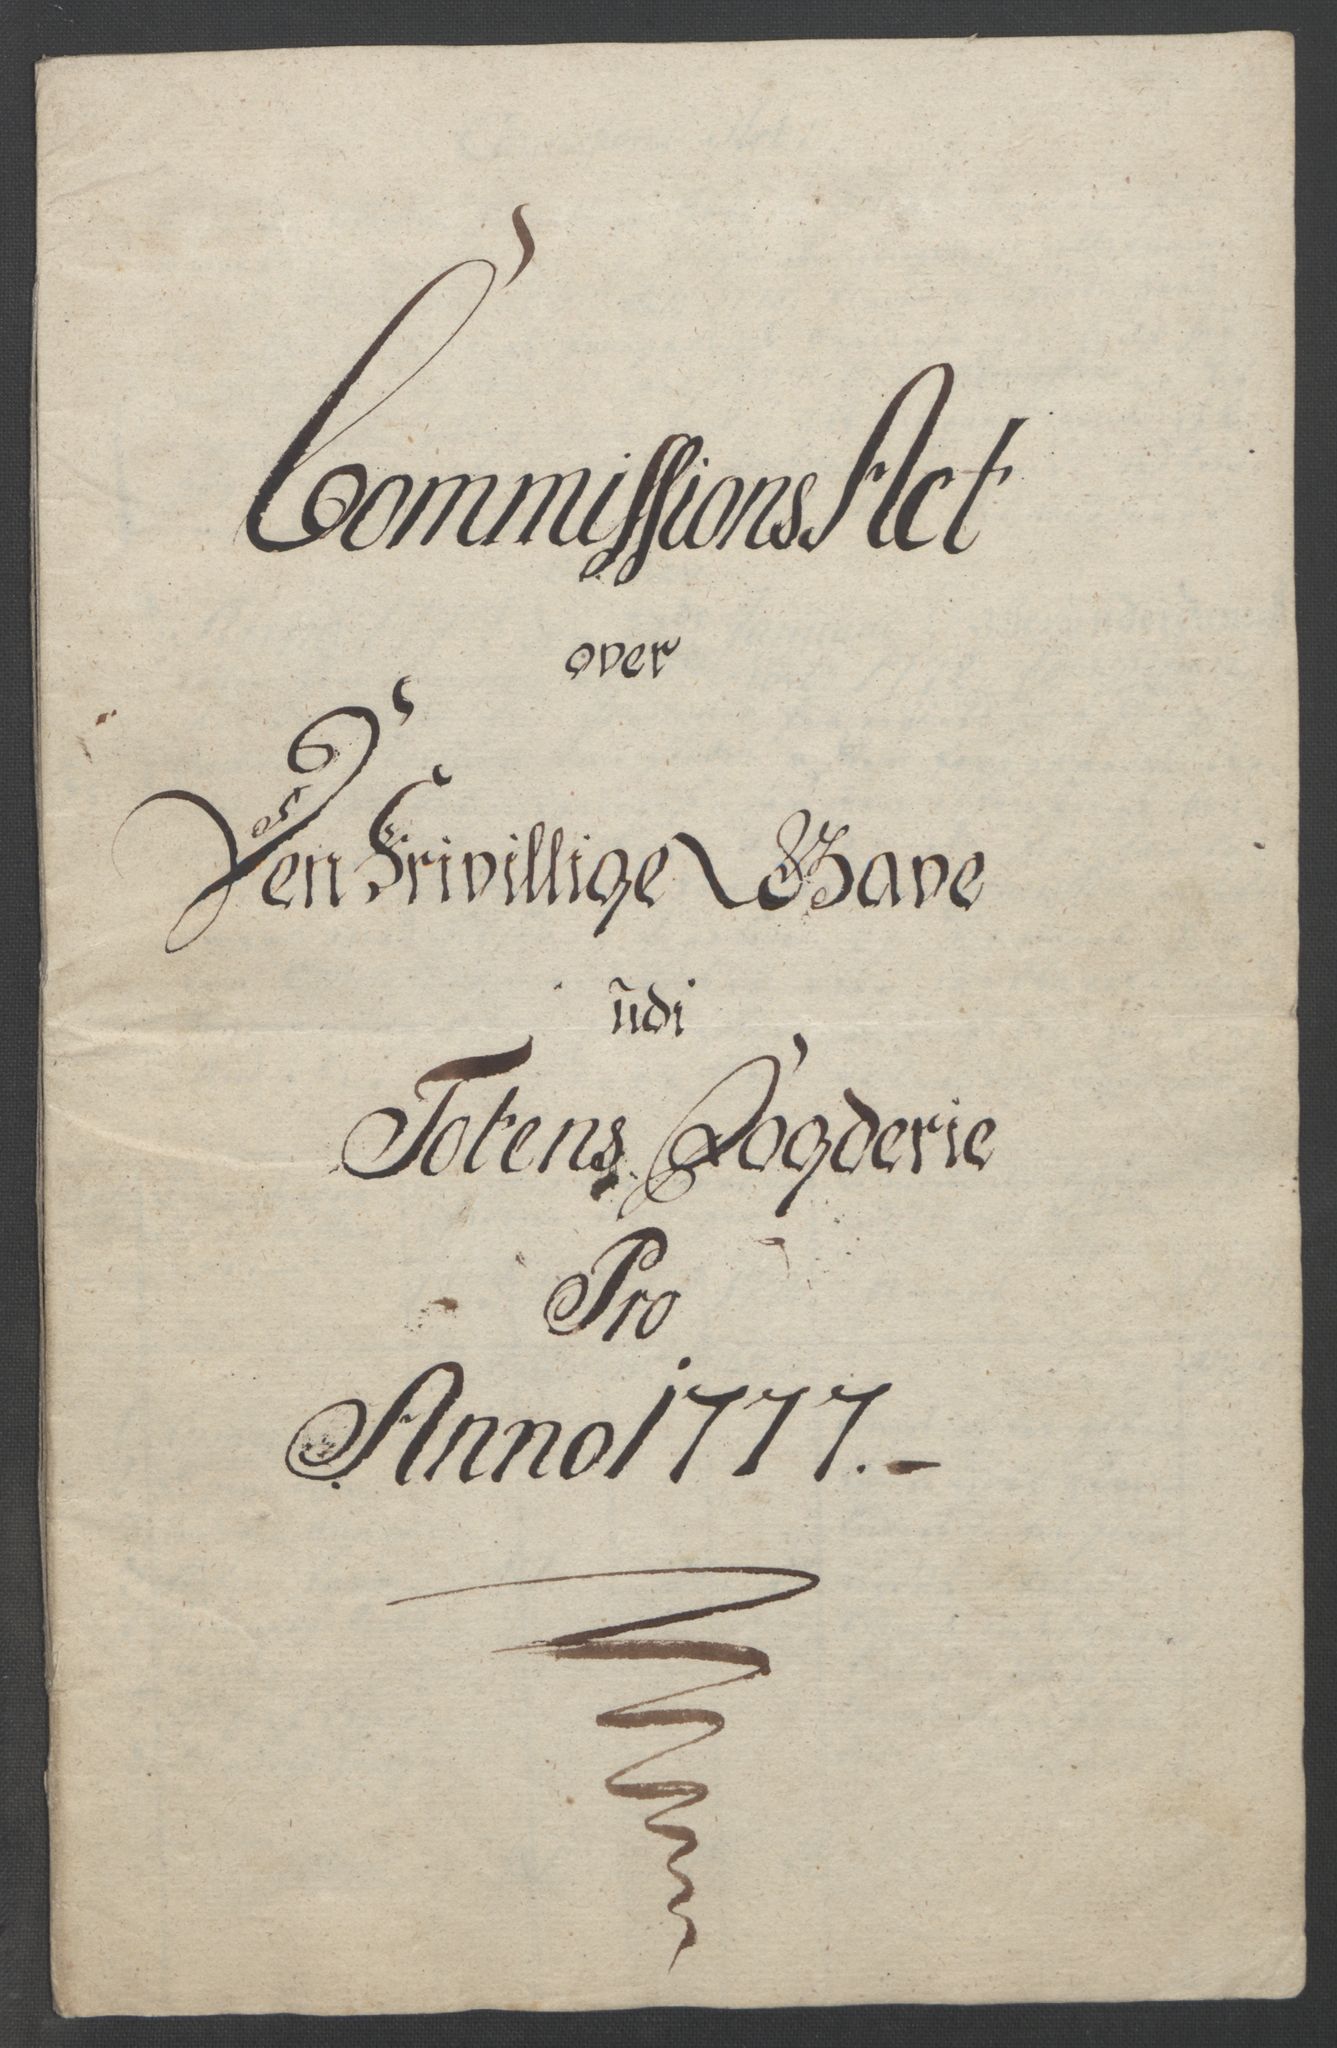 Commissions Act
over
Den Frivillige Gave
udi
Totens Fogderie
Pro
Anno 1777.